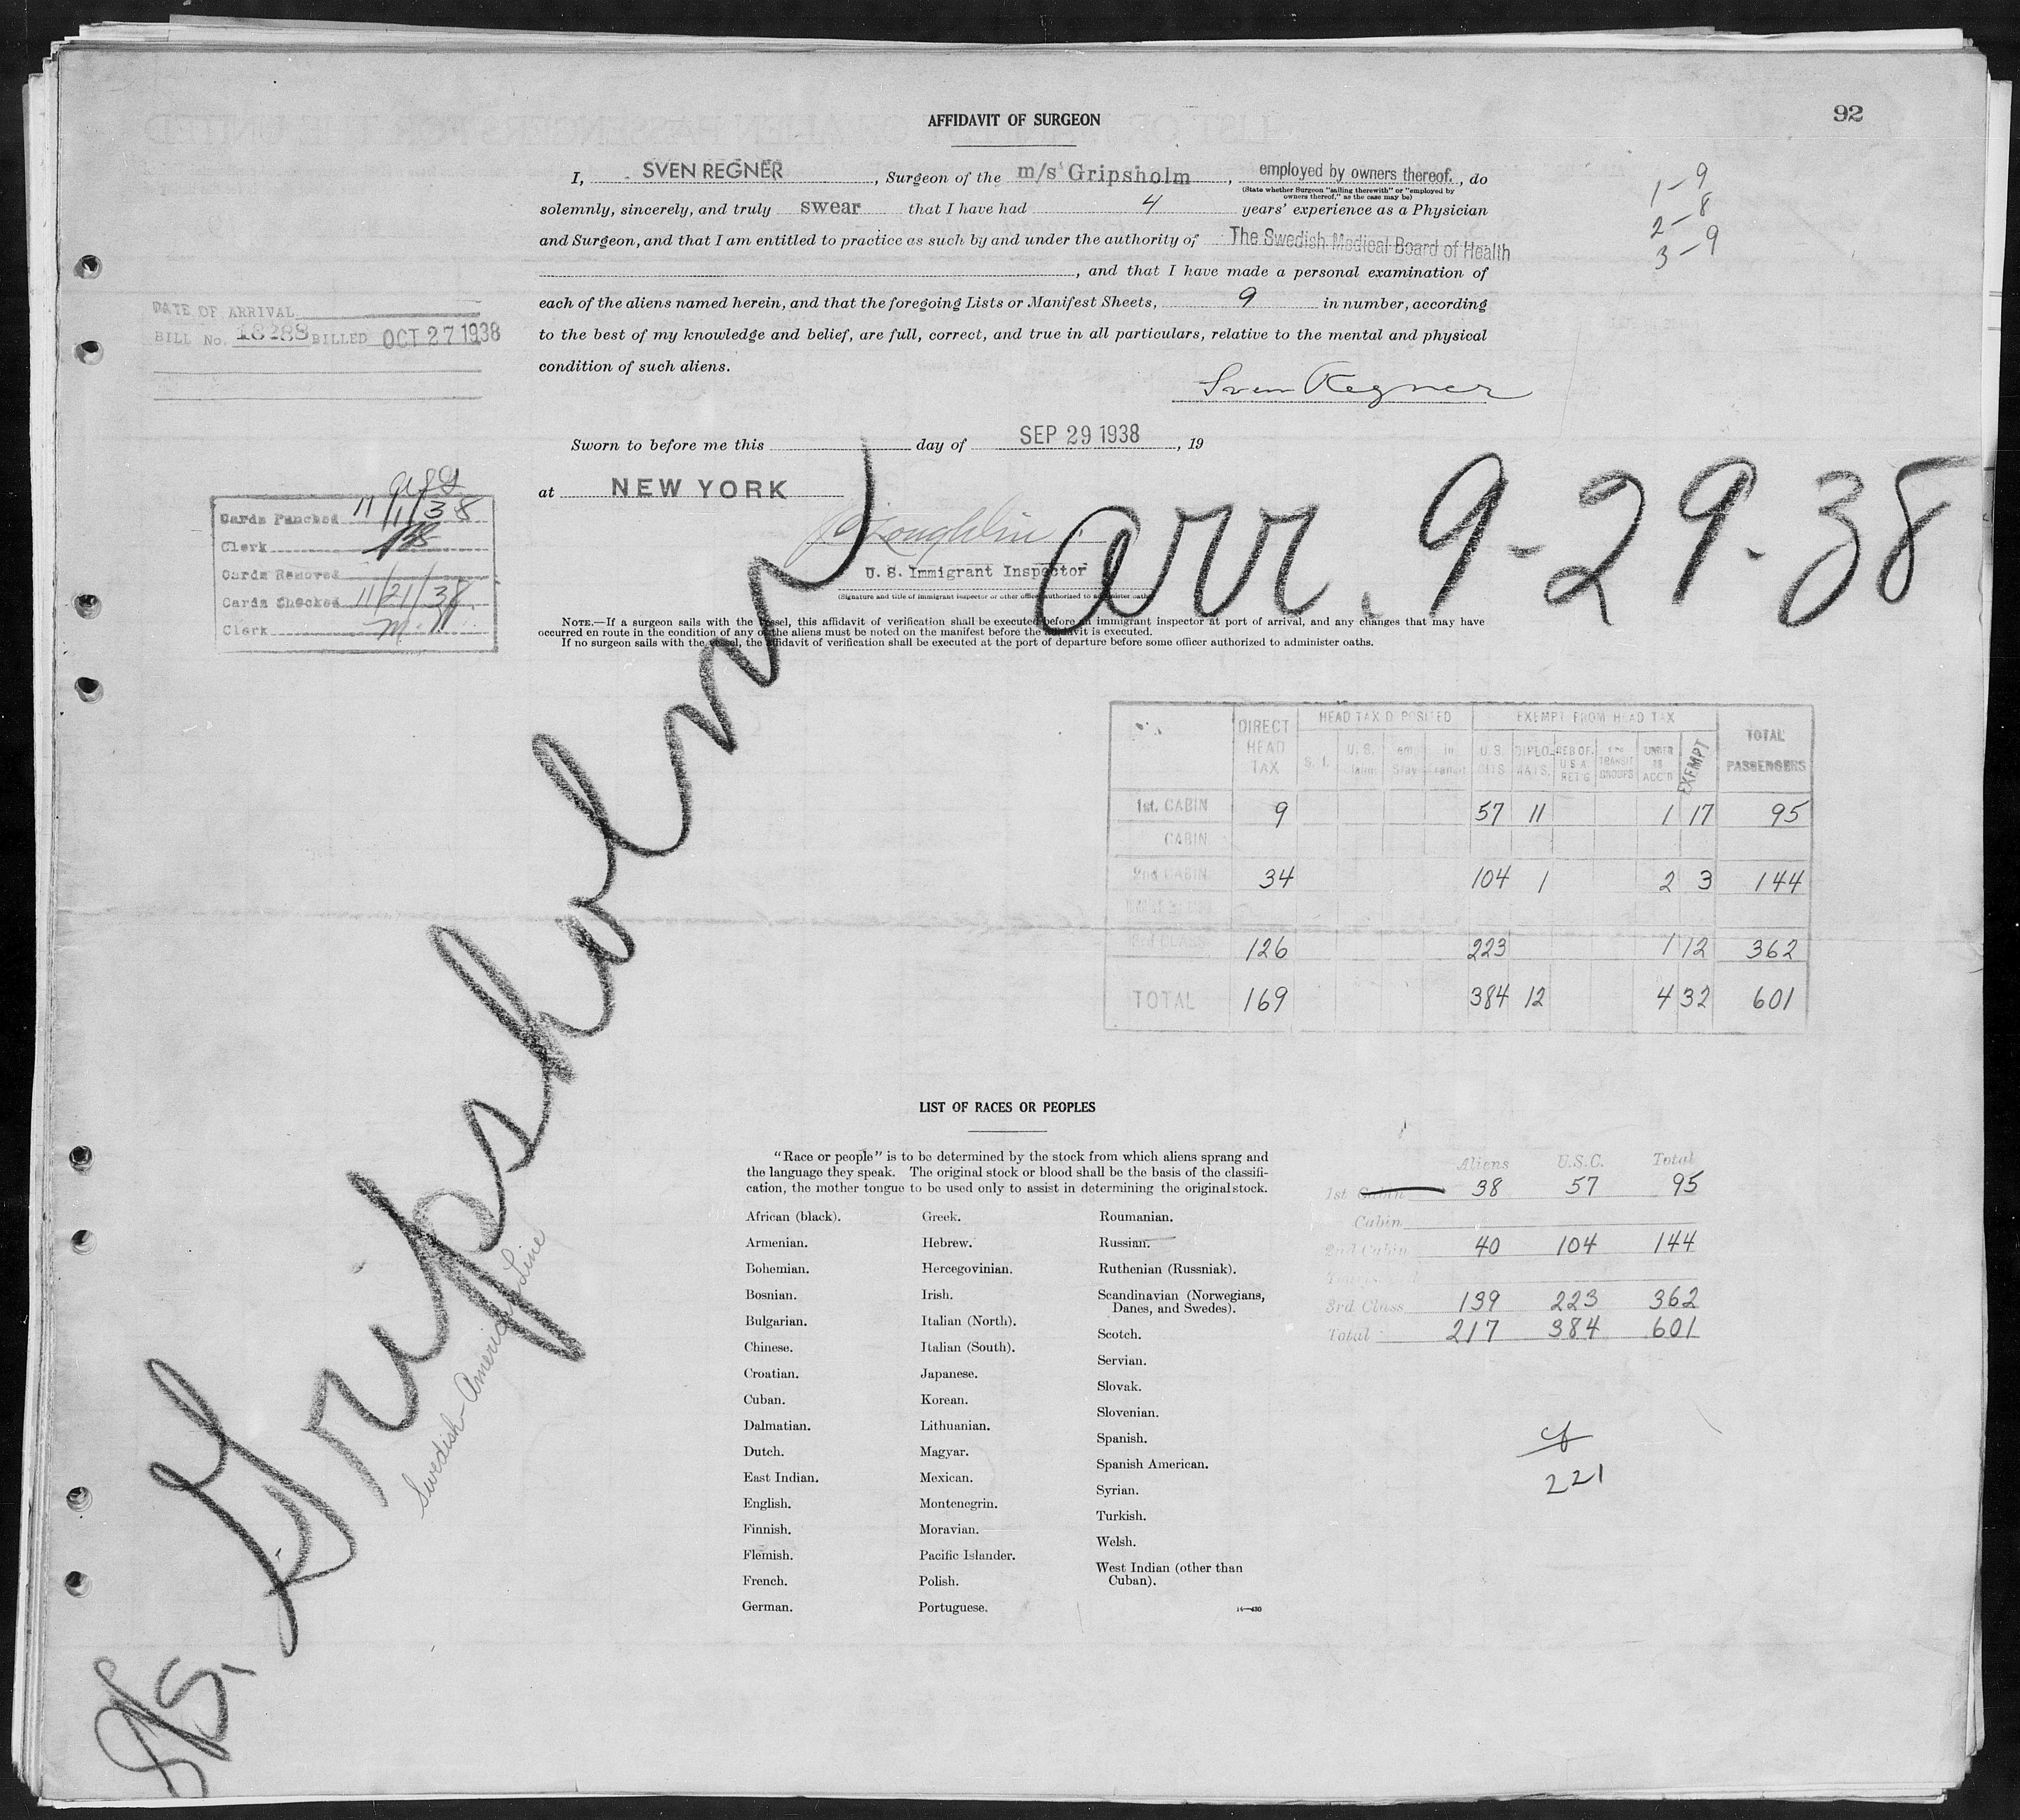 92
AFFIDAVIT OF SURGEON
I, SVEN REGNER, Surgeon of the m/s Gripsholm, employed by owners thereof., do
(State whether Surgeon "sailing therewith" or "employed by
owners thereof," as the case may be)
solemnly, sincerely, and truly swear that I have had 4 years' experience as a Physician
and Surgeon, and that I am entitled to practice as such by and under the authority of The Swedish Medical Board of Health
, and that I have made a personal examination of
each of the aliens named herein, and that the foregoing Lists or Manifest Sheets, 9 in number, according
to the best of my knowledge and belief, are full, correct, and true in all particulars, relative to the mental and physical
condition of such aliens.
Sven Regner
1-9
2-8
3-9
DATE OF ARRIVAL
BILL No. 18288 BILLED OCT 27 1938
Sworn to before me this day of SEP 29 1938, 19
at NEW YORK
U. S. Immigrant Inspector
(Signature and title of immigrant inspector or other officer authorized to administer oaths)
arr. 9-29-38
Cards Punched 11/1/38
Clerk
Cards Removed
Cards Checked 11/21/38
Clerk M.
NOTE.—If a surgeon sails with the vessel, this affidavit of verification shall be executed before an immigrant inspector at port of arrival, and any changes that may have
occurred en route in the condition of any of the aliens must be noted on the manifest before the affidavit is executed.
If no surgeon sails with the vessel, the affidavit of verification shall be executed at the port of departure before some officer authorized to administer oaths.
DIRECT HEAD TAX
HEAD TAX D POSITED
EXEMPT FROM HEAD TAX
TOTAL PASSENGERS
S. I. U. S. Claim U. S. CITS DIPLO-MATS. RES OF U S A RET'G TRANSIT GROUPS UNDER 16 ACC'D EXEMPT
1st. CABIN 9 57 11 1 17 95
CABIN
2nd CABIN 34 104 1 2 3 144
3rd CLASS 126 223 1 12 362
TOTAL 169 384 12 4 32 601
S/S. Gripsholm
Swedish-American Line
LIST OF RACES OR PEOPLES
"Race or people" is to be determined by the stock from which aliens sprang and
the language they speak. The original stock or blood shall be the basis of the classifi-
cation, the mother tongue to be used only to assist in determining the original stock.
African (black).
Armenian.
Bohemian.
Bosnian.
Bulgarian.
Chinese.
Croatian.
Cuban.
Dalmatian.
Dutch.
East Indian.
English.
Finnish.
Flemish.
French.
German.
Greek.
Hebrew.
Hercegovinian.
Irish.
Italian (North).
Italian (South).
Japanese.
Korean.
Lithuanian.
Magyar.
Mexican.
Montenegrin.
Moravian.
Pacific Islander.
Polish.
Portuguese.
Roumanian.
Russian.
Ruthenian (Russniak).
Scandinavian (Norwegians,
Danes, and Swedes).
Scotch.
Servian.
Slovak.
Slovenian.
Spanish.
Spanish American.
Syrian.
Turkish.
Welsh.
West Indian (other than
Cuban).
14—430
Aliens U.S.C. Total
1st Cabin 38 57 95
Cabin
2nd Cabin 40 104 144
3rd Class 139 223 362
Total 217 384 601
221